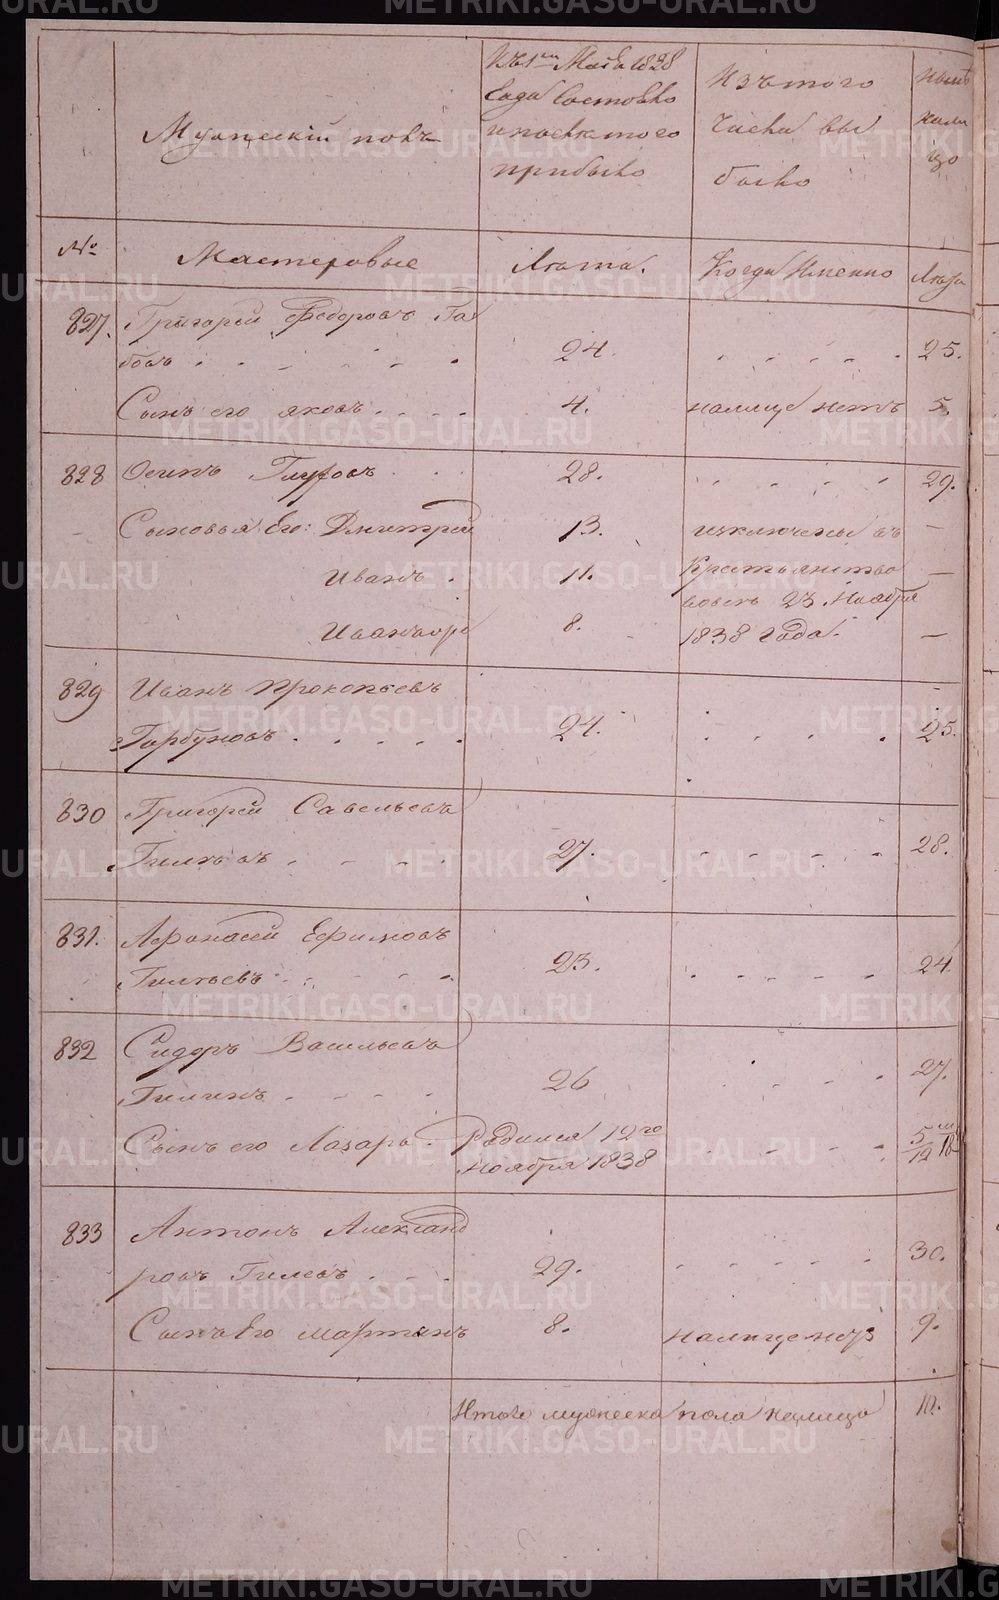 Мужескій полъ
Къ 1му Маія 1828
года состояло
и после того
прибыло
Изъ того
числа вы
было
ныне
нали
цо
№
Мастеровые
Лета.
Когда Именно
Лета
827. Григорей Федоровъ Га
бовъ 24. 25.
Сынъ его яковъ 4. налице нетъ 5.
828 Осипъ 28. 29.
Сыновья Его: Дмитрей 13. изключены въ —
Иванъ. 11. Крестьянство —
23. Ноября
8. 1838 года. —
829 Иванъ Прокопьевъ
Горбуновъ 24. 25.
830 Григорей Савельевъ
Гилевъ 27. 28.
831. Афонасей Ефимовъ
Гилевъ 23. 24
832 Сидоръ Васильевъ
Гилевъ 26 27.
Сынъ его Лазарь. Родился 12го 5/12
Ноября 1838
833 Антонъ Александ
ровъ Гилевъ 29. 30.
Сынъ Его Мартынъ 8. налице нетъ 9.
Итого мужеска пола налицо 10.
METRIKI.GASO-URAL.RU